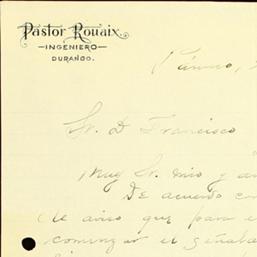 Pastor Rouaix.
INGENIERO
DURANGO.
Pánuco,
Sr. D. Francisco
Muy Sr. mio y
De acuerdo con
le aviso que para e
comenzar el señala